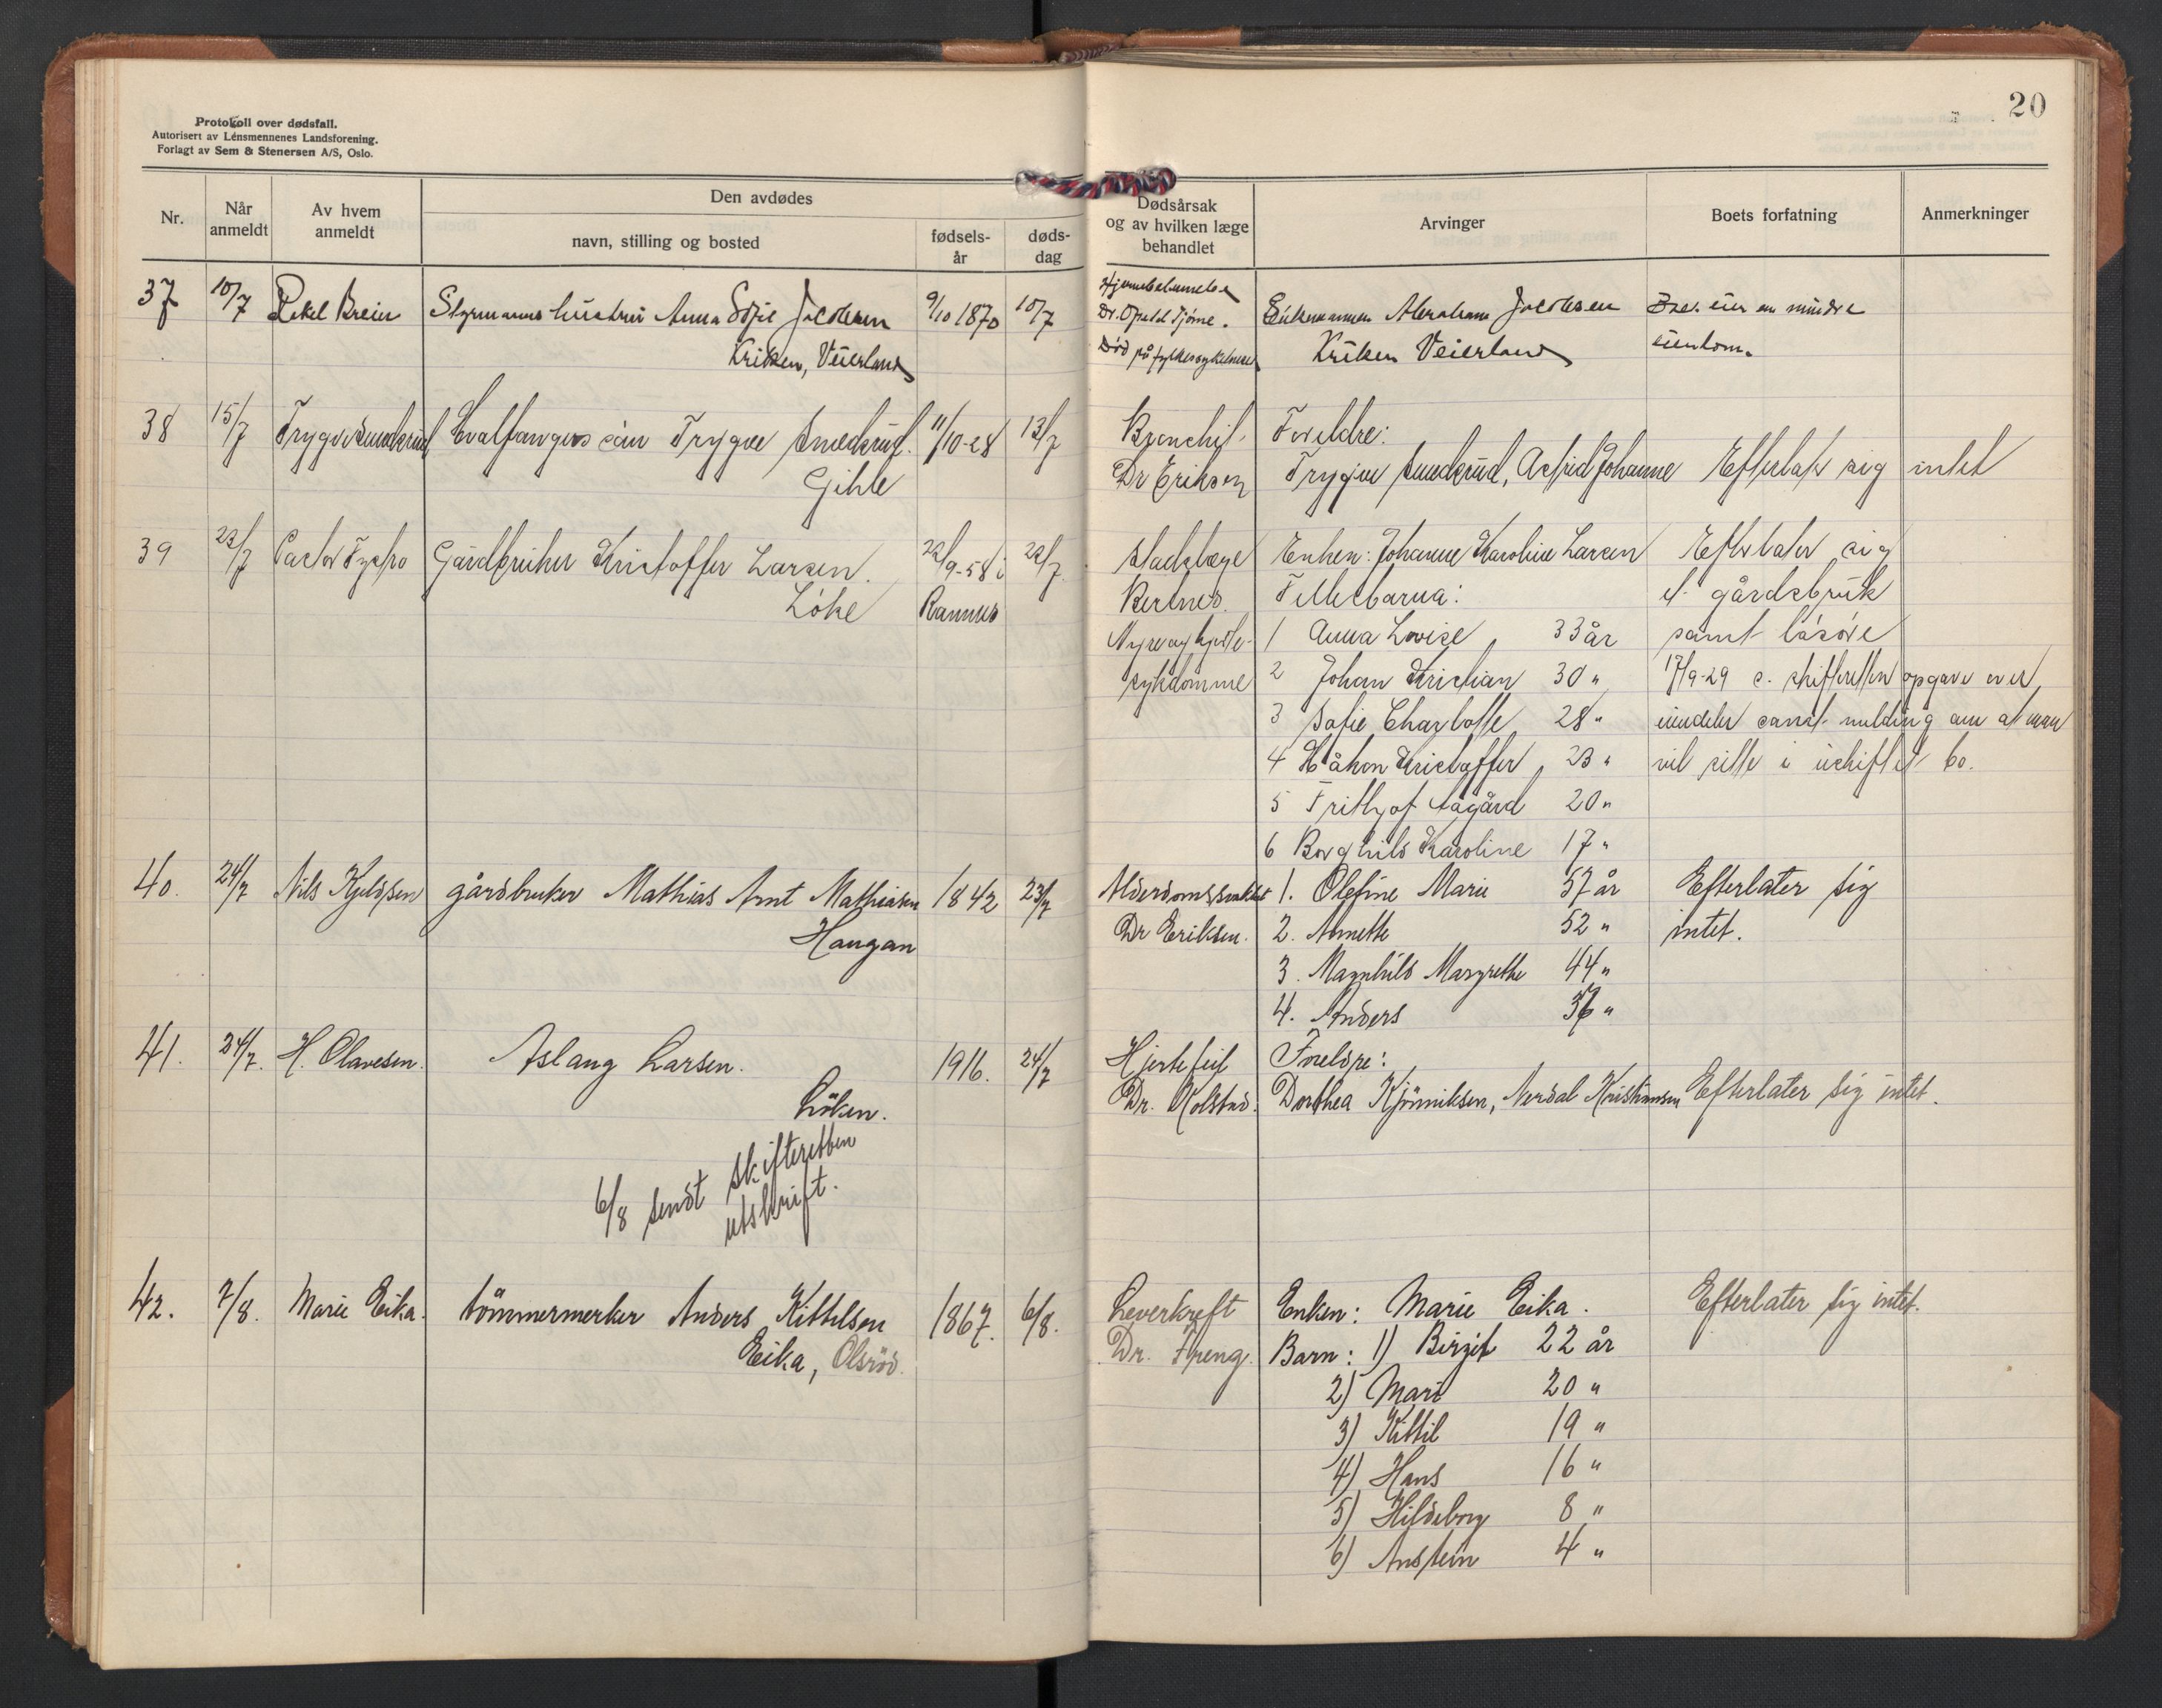 20
Protokoll over dødsfall.
Autorisert av Lensmennenes Landsforening.
Forlagt av Sem & Stenersen A/S, Oslo.
Nr.
Når anmeldt
Av hvem anmeldt
Den avdødes
navn, stilling og bosted
fødsels-år
døds-dag
Dødsårsak og av hvilken læge behandlet
Arvinger
Boets forfatning
Anmerkninger
37 10/7 Styrmanns hustru Anna Sofie Jacobsen 9/10 1870 10/7
Veierland
Enkemannen Abraham Jacobsen
Veierland
eier en mindre
eiendom.
38 15/7 Trygve Smedsrud Hvalfangers sön Trygve Smedsrud. 11/10-28 13/7 Bronchit. Foreldre:
Gihle Dr Eriksen Trygve Smedsrud, Astrid Johanne Efterlater sig intet
39 22/7 Gårdbruker Kristoffer Larsen. 22/9-58 i 22/7 Stadslæge Enken: Johanne Karoline Larsen Efterlater sig
Löke Ramnes Fellesbarna: et gårdsbruk
1 Anna Lovise 33 år samt lösöre
sykdomme 2 Johan Kristian 30 " 17/9-29 s. skifteretten opgave over
3 Sofie Charlotte 28 " eiendeler samt melding om at man
4 Håkon Kristoffer 23 " vil sitte i uskiftet bo.
5 Frithjof Aagård 20 "
6 Borghild Karoline 17 "
40. 24/7 Nils Kjeldsen gårdbruker Mathias Arnt Mathiasen 1842 23/7 Alderdomssvakhet 1. Olefine Marie 57 år Efterlater sig
Haugan Dr Eriksen. 2. Annette 52 " intet.
3. Magnhild Margrethe 44 "
4. Anders 37 "
41. 24/7. H. Olavesen. Aslaug Larsen. 1916. 24/7 Hjertefeil Foreldre:
Löken. Dr. Kolstad. Dorthea Kristiansen Efterlater sig intet.
6/8 sendt skifteretten
utskrift.
42. 7/8. Marie Eika. tömmermerker Anders Kittilsen 1867. 6/8. Leverkreft Enken: Marie Eika. Efterlater sig intet.
Eika, Olsröd. Barn: 1) Birgit 22 år
2) Mari 20 "
3) Kittil 19 "
4) Hans 16 "
5) Hildeborg 8 "
6) Anstein 4 "